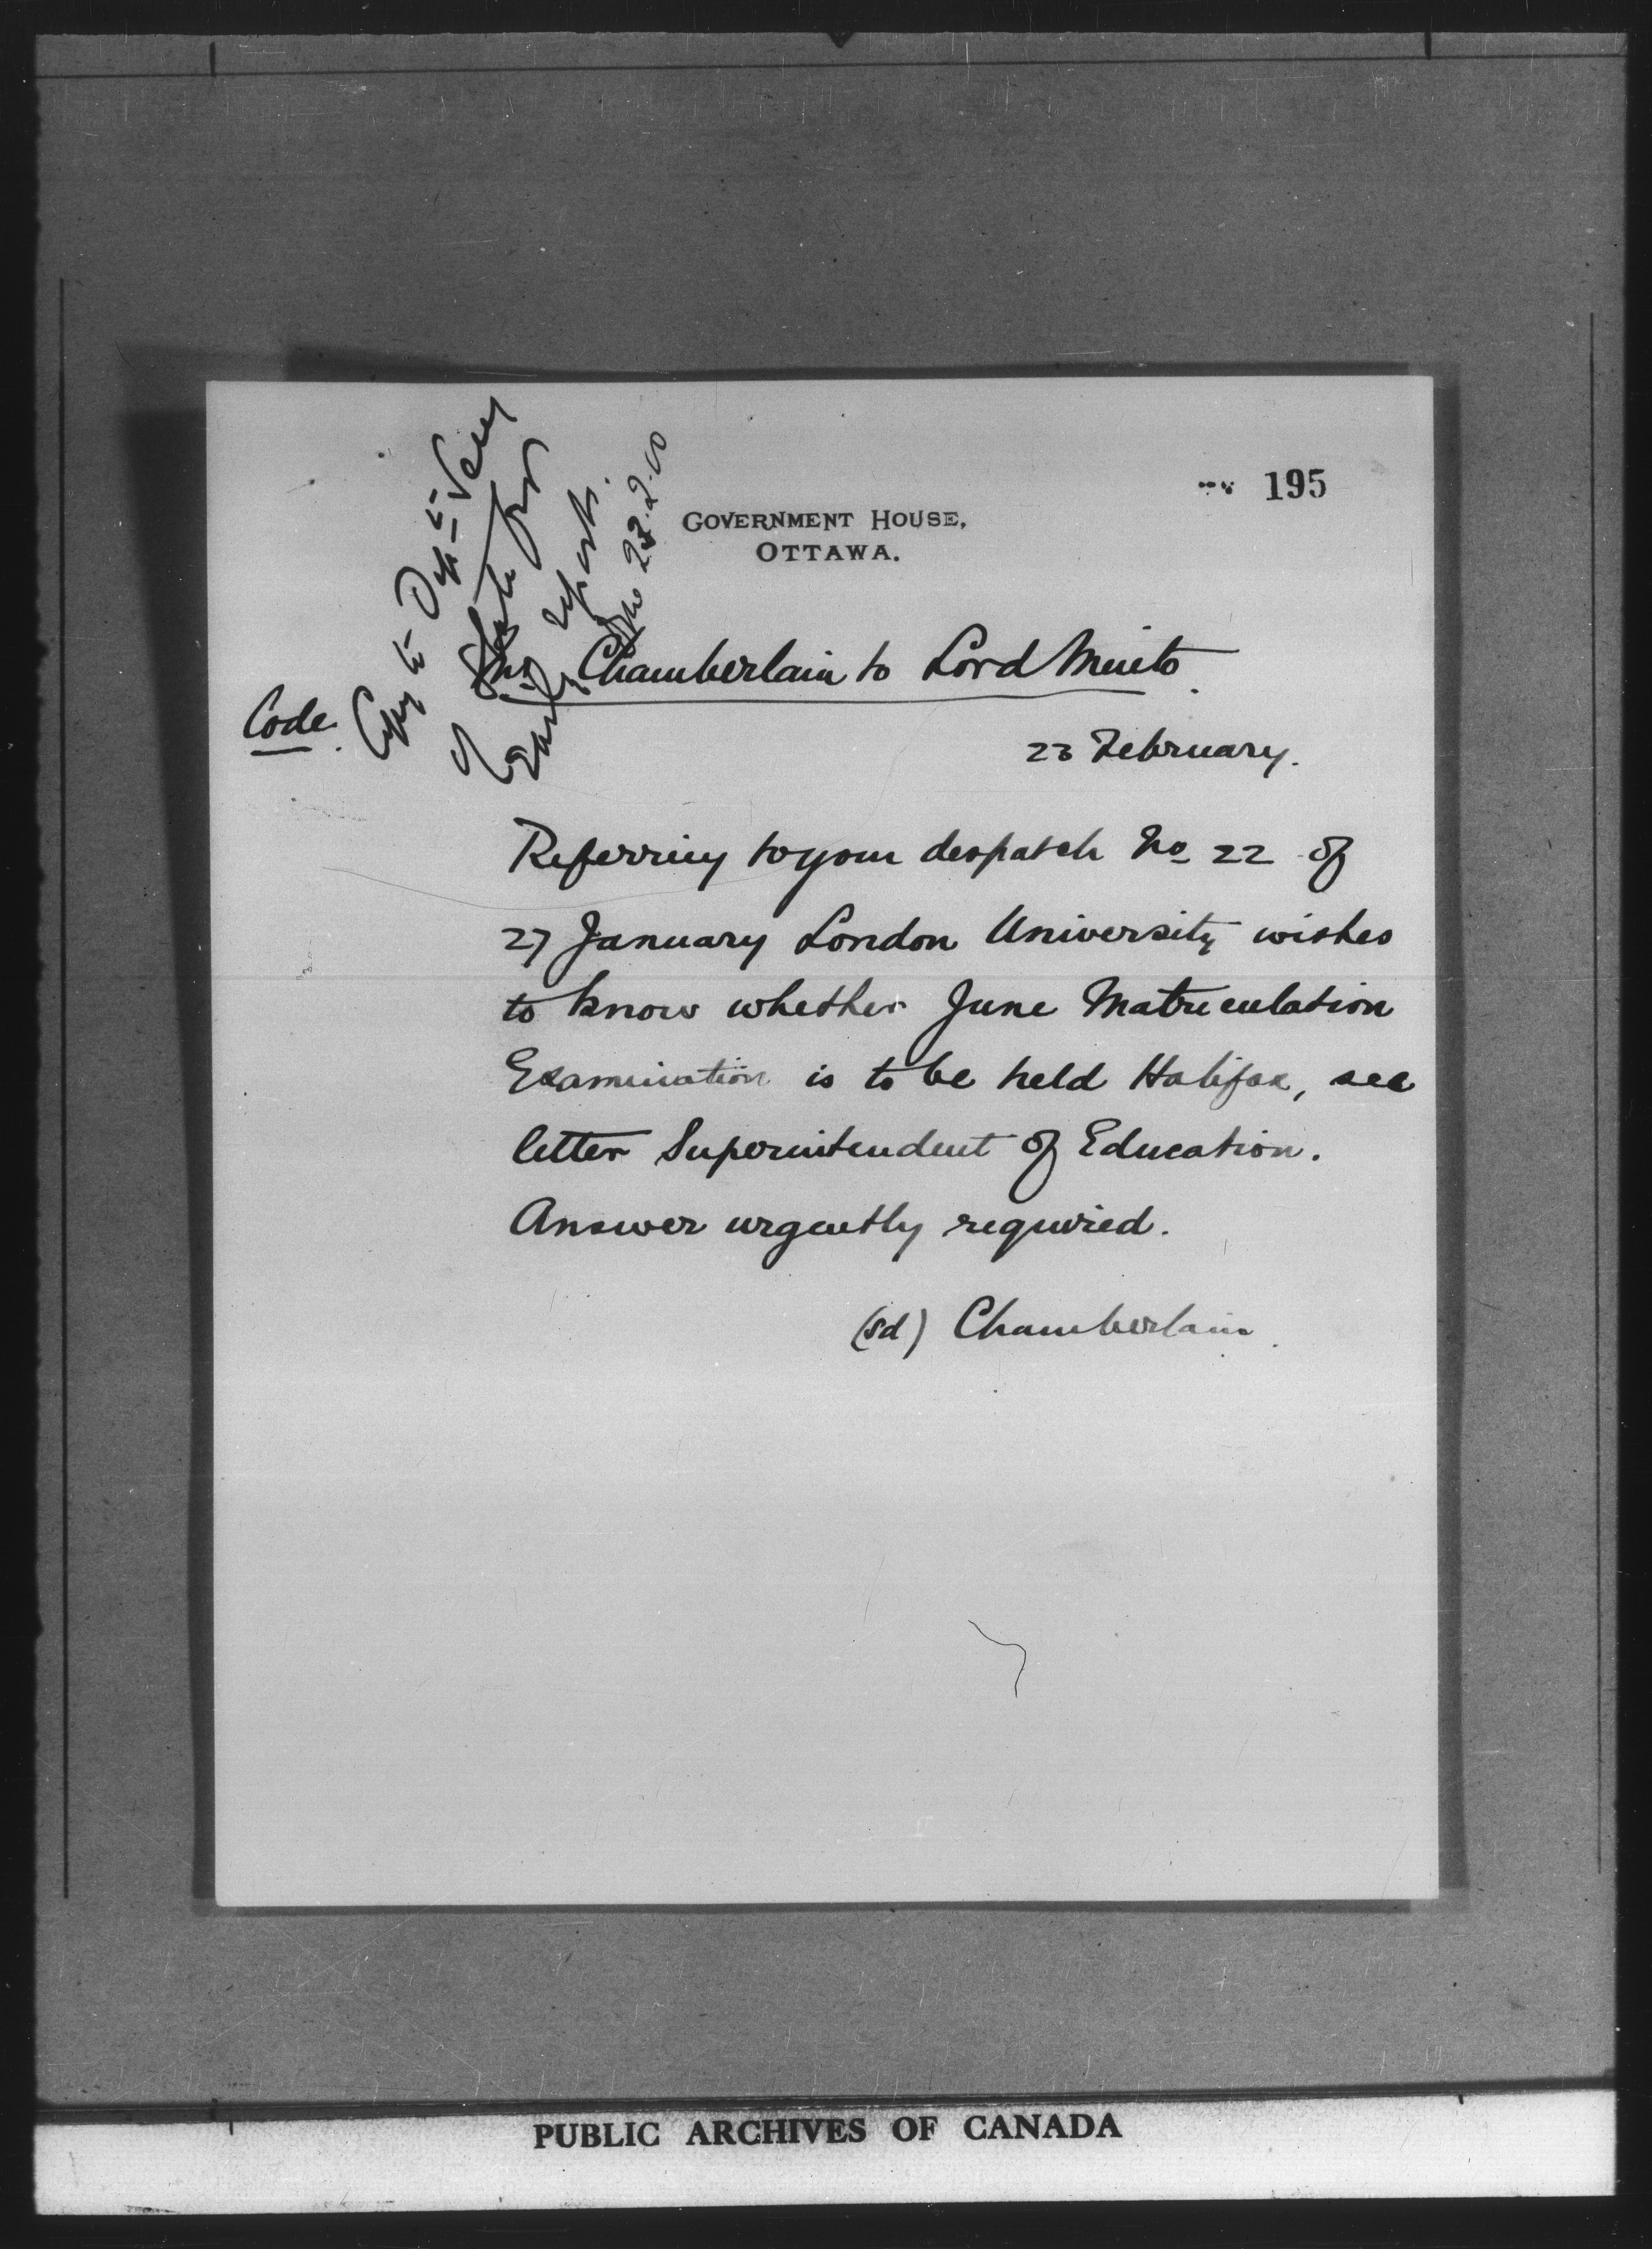 195
GOVERNMENT HOUSE,
OTTAWA.
Copy to Dept Secy
of State for
early report.
23.2.00
Mr Chamberlain to Lord Minto.
Code.
23 February.
Referring to your despatch No 22 of
27 January London University wishes
to know whether June Matriculation
Examination is to be held Halifax, see
letter Superintendent of Education.
Answer urgently required.
(sd) Chamberlain.
PUBLIC ARCHIVES OF CANADA